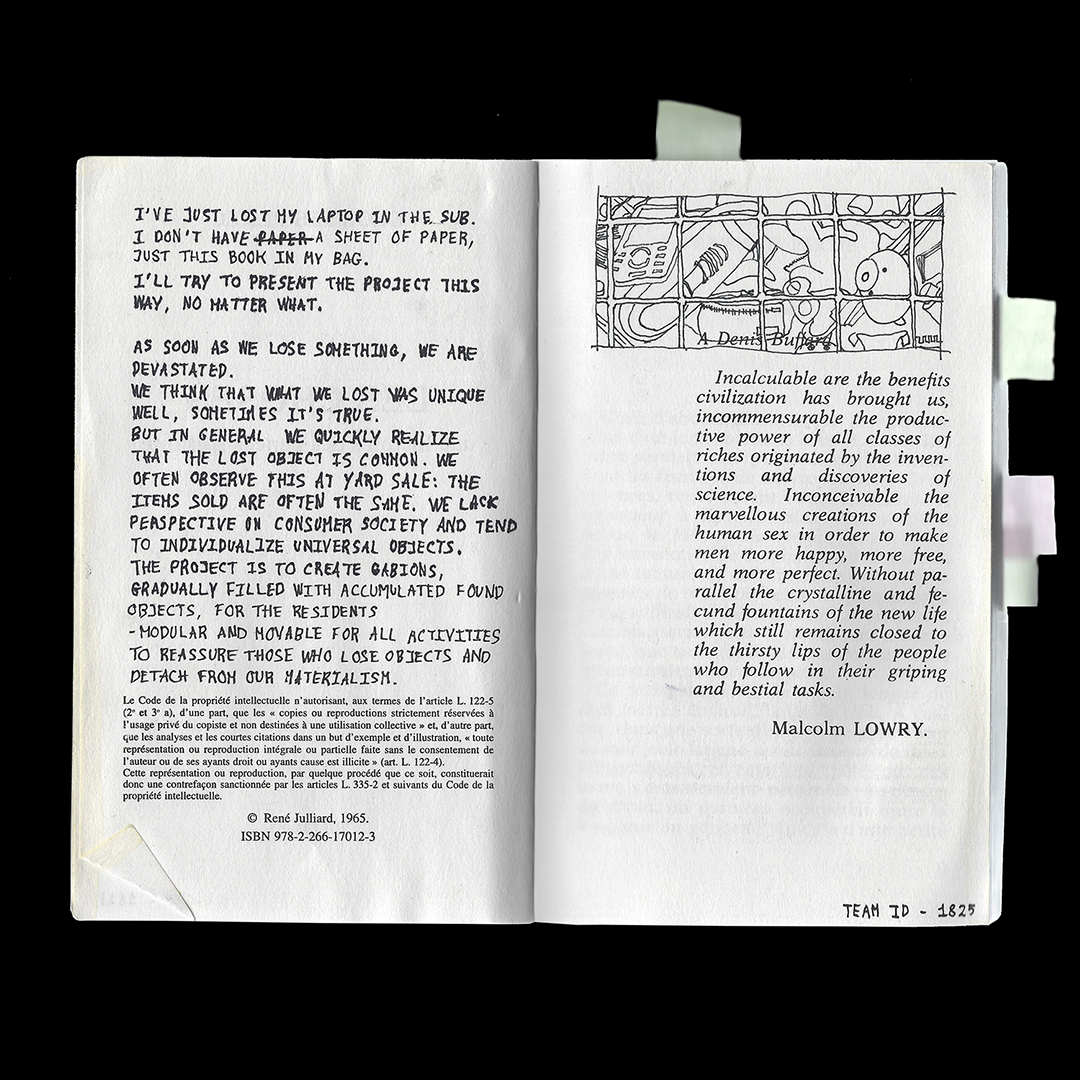 I'VE JUST LOST MY LAPTOP IN THE SUB.
I DON'T HAVE PAPER A SHEET OF PAPER,
JUST THIS BOOK IN MY BAG.
I'LL TRY TO PRESENT THE PROJECT THIS
WAY, NO MATTER WHAT.
AS SOON AS WE LOSE SOMETHING, WE ARE
DEVASTATED.
WE THINK THAT WHAT WE LOST WAS UNIQUE
WELL, SOMETIMES IT'S TRUE.
BUT IN GENERAL WE QUICKLY REALIZE
THAT THE LOST OBJECT IS COMMON. WE
OFTEN OBSERVE THIS AT YARD SALE: THE
ITEMS SOLD ARE OFTEN THE SAME. WE LACK
PERSPECTIVE ON CONSUMER SOCIETY AND TEND
TO INDIVIDUALIZE UNIVERSAL OBJECTS.
THE PROJECT IS TO CREATE GABIONS,
GRADUALLY FILLED WITH ACCUMULATED FOUND
OBJECTS, FOR THE RESIDENTS
-MODULAR AND MOVABLE FOR ALL ACTIVITIES
TO REASSURE THOSE WHO LOSE OBJECTS AND
DETACH FROM OUR MATERIALISM.
Le Code de la propriété intellectuelle n'autorisant, aux termes de l'article L. 122-5
(2º et 3º a), d'une part, que les « copies ou reproductions strictement réservées à
l'usage privé du copiste et non destinées à une utilisation collective » et, d'autre part,
que les analyses et les courtes citations dans un but d'exemple et d'illustration, « toute
représentation ou reproduction intégrale ou partielle faite sans le consentement de
l'auteur ou de ses ayants droit ou ayants cause est illicite » (art. L. 122-4).
Cette représentation ou reproduction, par quelque procédé que ce soit, constituerait
donc une contrefaçon sanctionnée par les articles L. 335-2 et suivants du Code de la
propriété intellectuelle.
© René Julliard, 1965.
ISBN 978-2-266-17012-3
A Denis Buffard
Incalculable are the benefits
civilization has brought us,
incommensurable the produc-
tive power of all classes of
riches originated by the inven-
tions and discoveries of
science. Inconceivable the
marvellous creations of the
human sex in order to make
men more happy, more free,
and more perfect. Without pa-
rallel the crystalline and fe-
cund fountains of the new life
which still remains closed to
the thirsty lips of the people
who follow in their griping
and bestial tasks.
Malcolm LOWRY.
TEAM ID - 1825